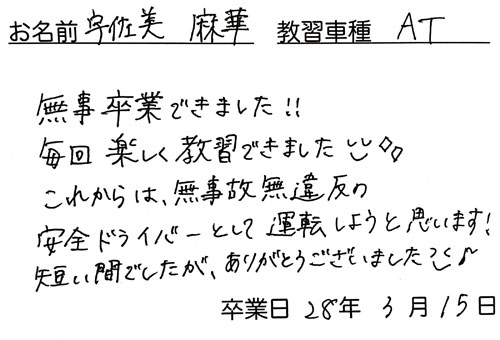 お名前 宇佐美 麻華 教習車種 AT
無事卒業できました!!
毎回楽しく教習できました
これからは、無事故無違反の
安全ドライバーとして運転しようと思います!
短い間でしたが、ありがとうございました♪
卒業日 28年 3月15日